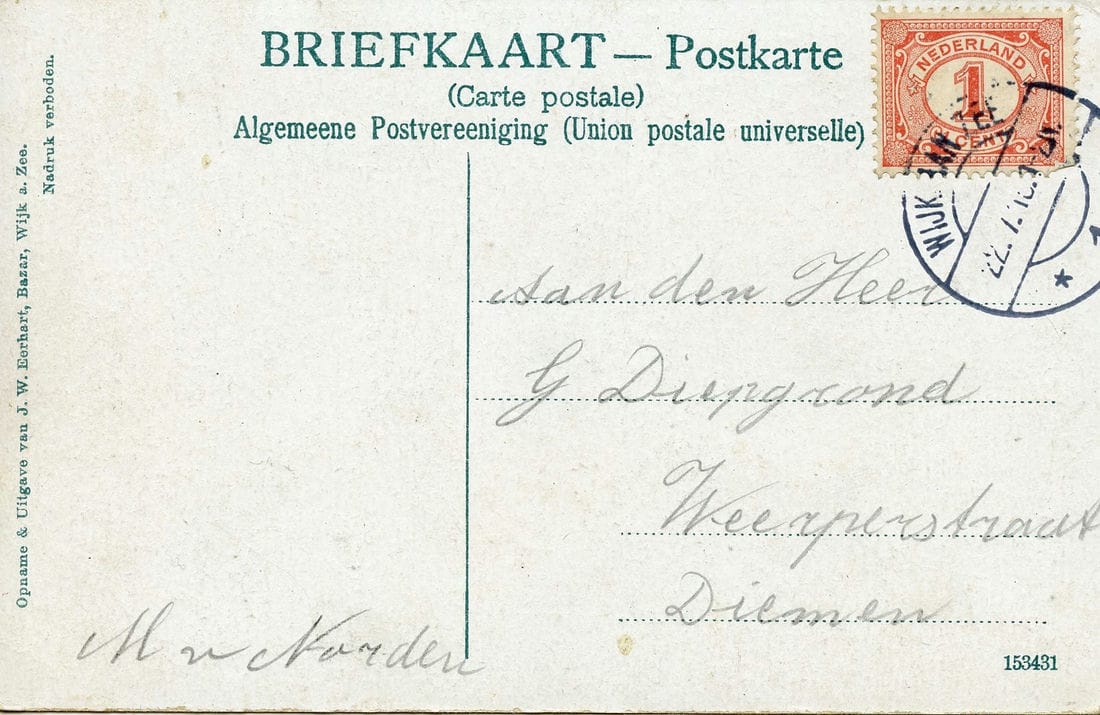 BRIEFKAART — Postkarte
(Carte postale)
Algemeene Postvereeniging (Union postale universelle)
NEDERLAND
1
CENT
WIJK AAN ZEE
22.7.
1
Aan den Heer
G Diepgrond
Weesperstraat
Diemen
M v Norden
153431
Opname & Uitgave van J. W. Eerhart, Bazar, Wijk a. Zee.
Nadruk verboden.